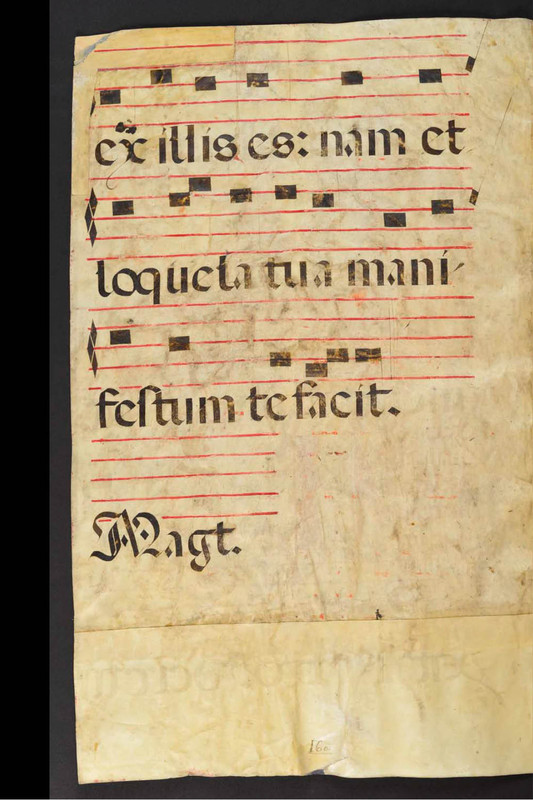 ex illis es: nam et
loquela tua mani-
festum te facit.
Magt.